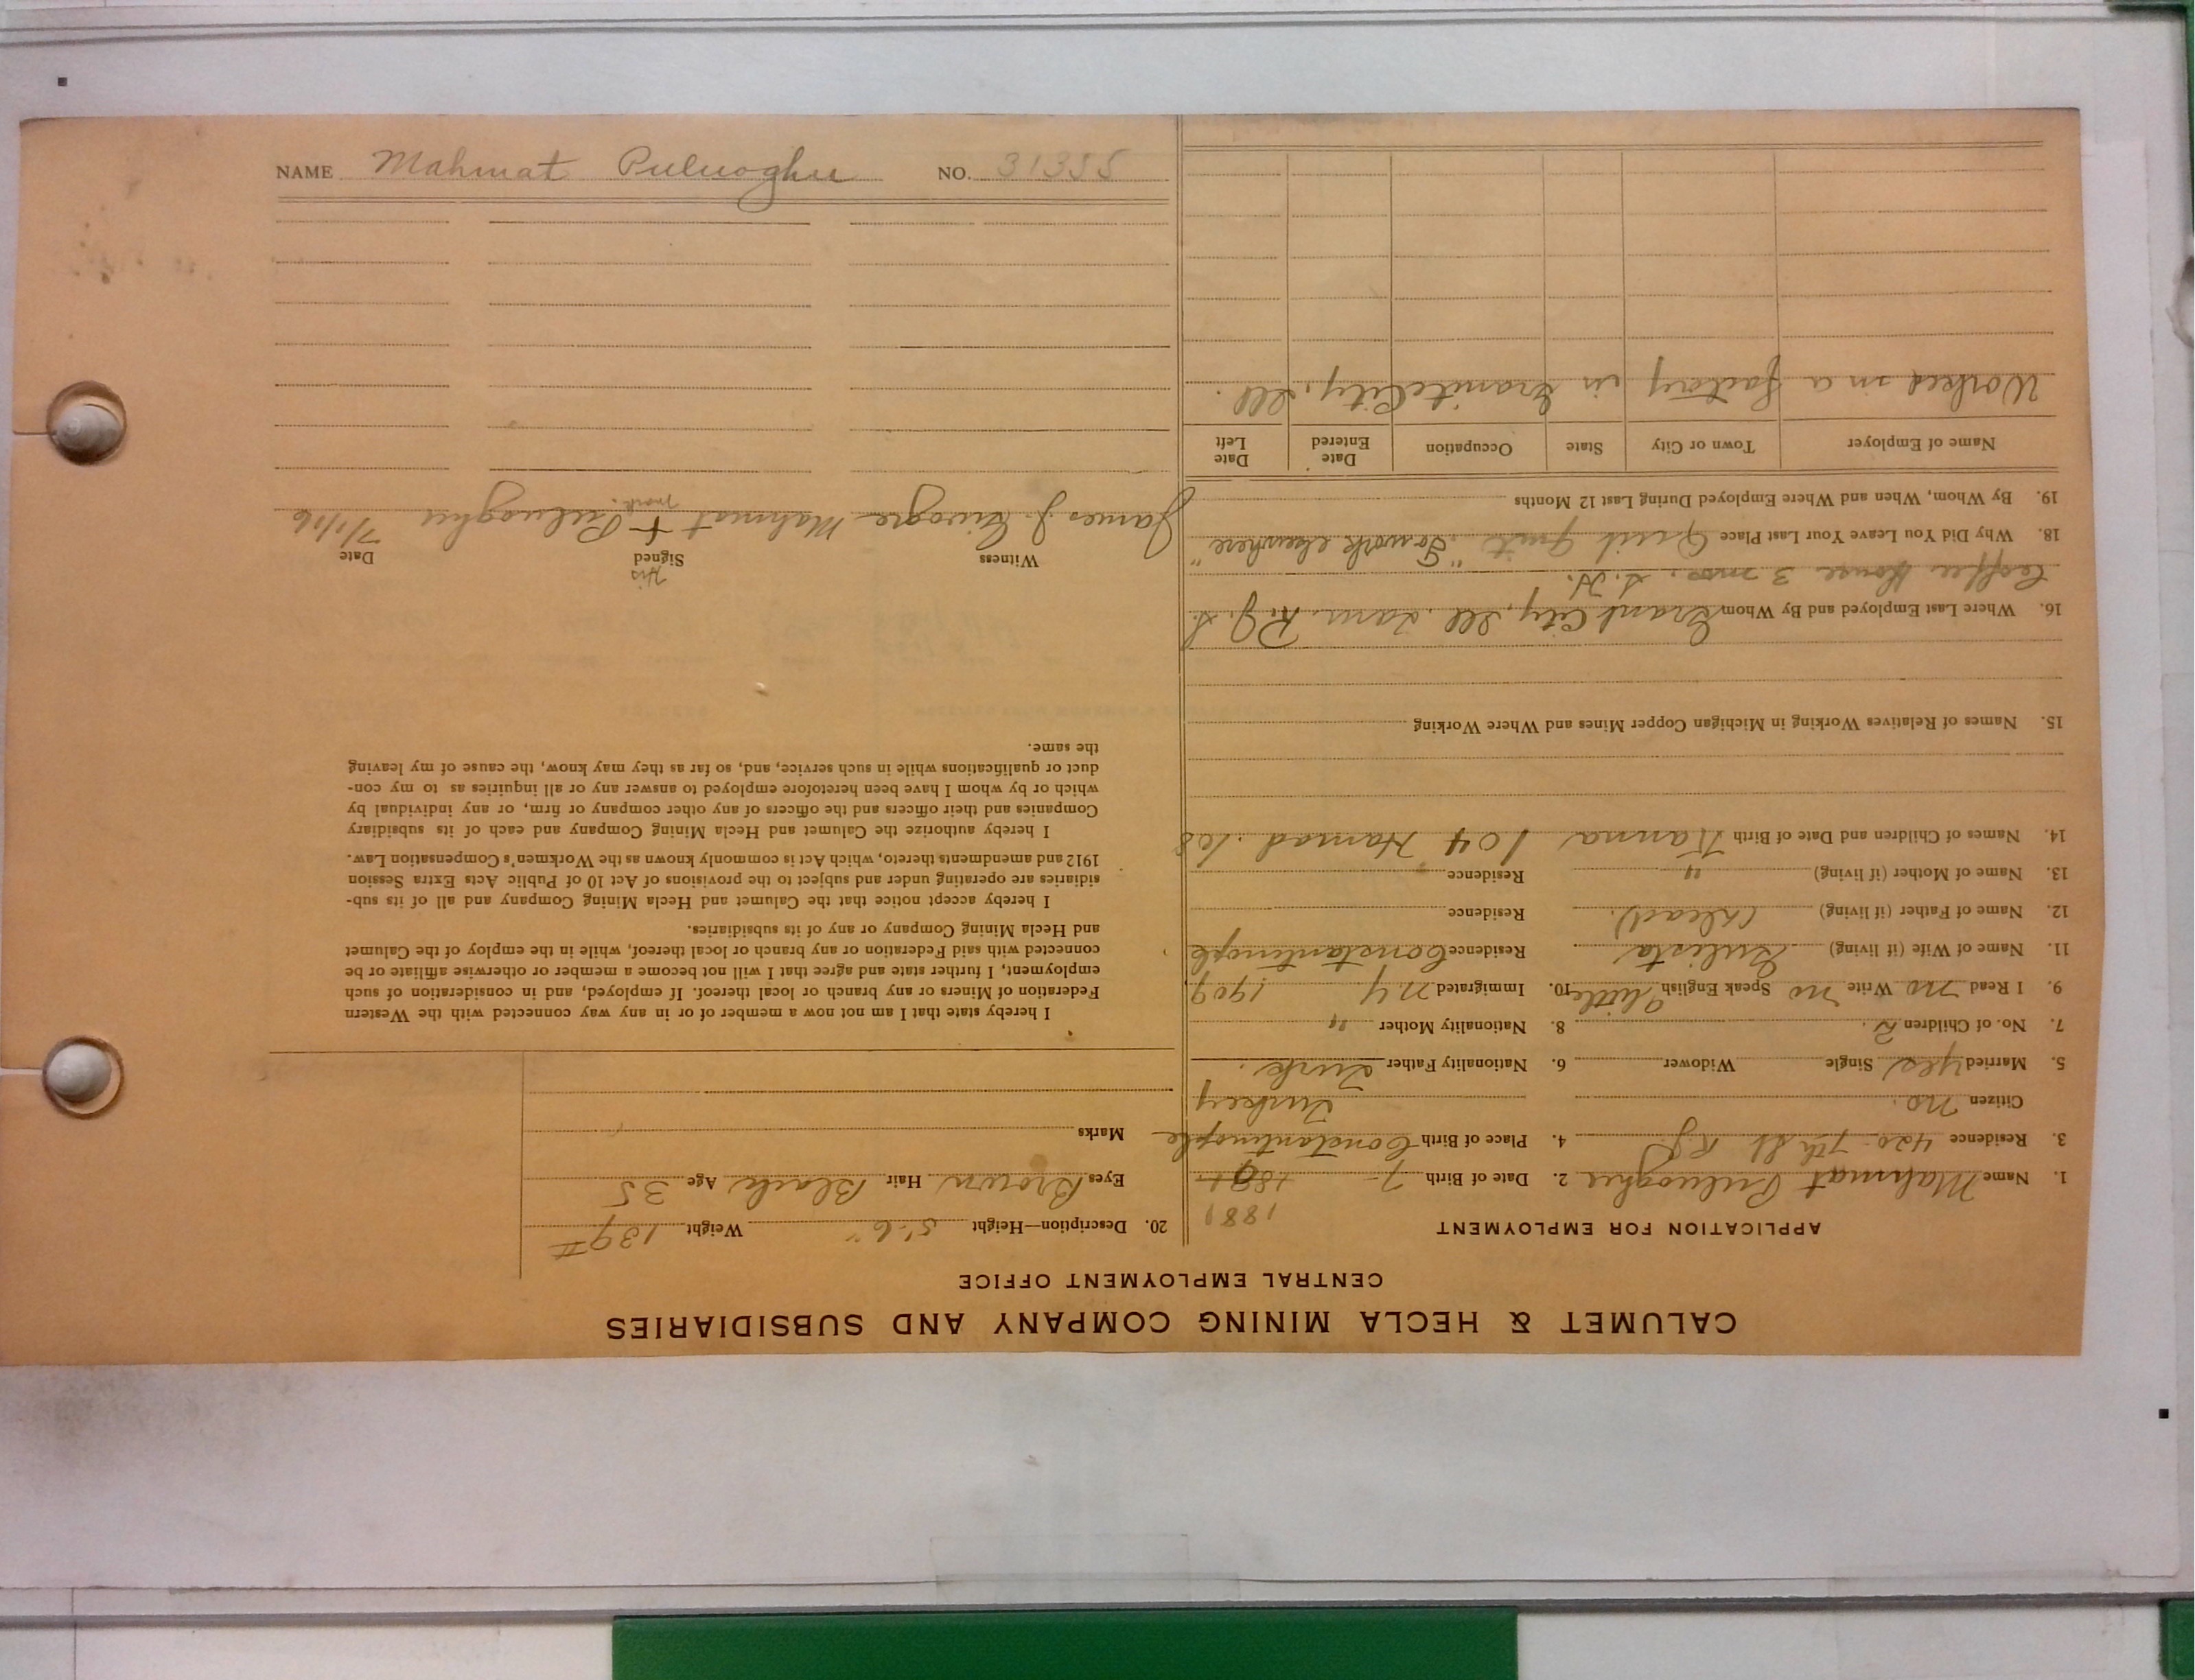 NAME Mahmat Puluoghu NO. 31355
CALUMET & HECLA MINING COMPANY AND SUBSIDIARIES
CENTRAL EMPLOYMENT OFFICE
APPLICATION FOR EMPLOYMENT
1881
1. Name Mahmat Puluoghu 2. Date of Birth 7-
3. Residence 420-7th St 4. Place of Birth Constantinople
Citizen no. Turkey
5. Married yes Single Widower 6. Nationality Father Turk.
7. No. of Children 2. 8. Nationality Mother "
9. I Read no Write no Speak English Little 10. Immigrated NY 1909
11. Name of Wife (if living) Gulista Residence Constantinople
12. Name of Father (if living) (dead). Residence
13. Name of Mother (if living) " Residence
14. Names of Children and Date of Birth Hanna 104 Hamad. 108
15. Names of Relatives Working in Michigan Copper Mines and Where Working
16. Where Last Employed and By Whom Granit City, Ill
Coffee House 3 mos.
18. Why Did You Leave Your Last Place Quit "To work elsewhere"
19. By Whom, When and Where Employed During Last 12 Months
Name of Employer Town or City State Occupation Date Entered Date Left
Worked in a factory in Granite City, Ill.
20. Description—Height 5'-6" Weight 139 #
Eyes Brown Hair Black Age 35
Marks
I hereby state that I am not now a member of or in any way connected with the Western
Federation of Miners or any branch or local thereof. If employed, and in consideration of such
employment, I further state and agree that I will not become a member or otherwise affiliate or be
connected with said Federation or any branch or local thereof, while in the employ of the Calumet
and Hecla Mining Company or any of its subsidiaries.
I hereby accept notice that the Calumet and Hecla Mining Company and all of its sub-
sidiaries are operating under and subject to the provisions of Act 10 of Public Acts Extra Session
1912 and amendments thereto, which Act is commonly known as the Workmen's Compensation Law.
I hereby authorize the Calumet and Hecla Mining Company and each of its subsidiary
Companies and their officers and the officers of any other company or firm, or any individual by
which or by whom I have been heretofore employed to answer any or all inquiries as to my con-
duct or qualifications while in such service, and, so far as they may know, the cause of my leaving
the same.
His
Witness Signed Date
James J. Mahmat + Puluoghu 7/1/16
mark.